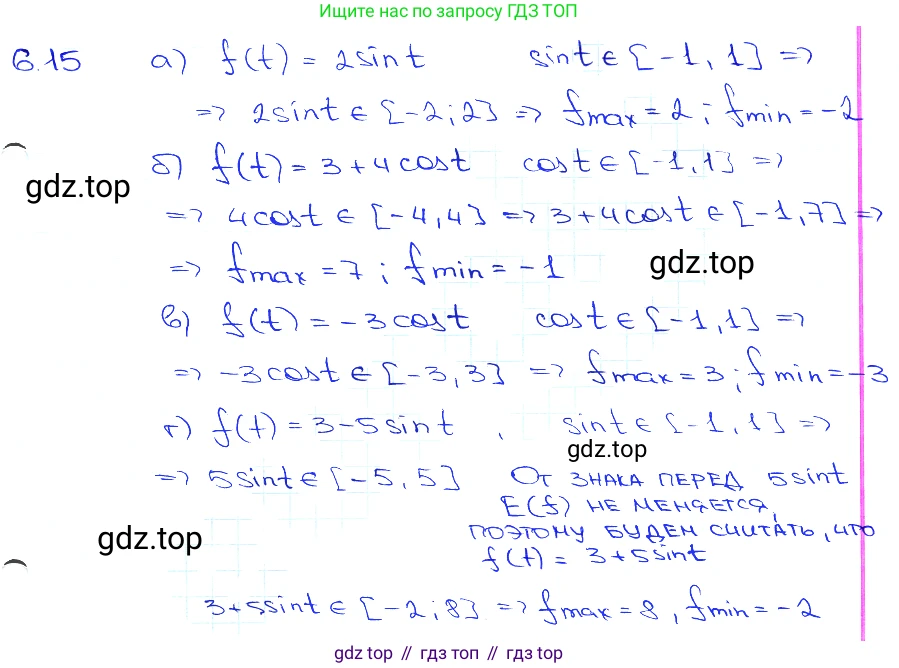 Ищите нас по запросу ГДЗ ТОП
6.15 а) f(t) = 2sint sint ∈ [-1, 1] =>
=> 2sint ∈ [-2; 2] => fmax = 2; fmin = -2
б) f(t) = 3 + 4cost cost ∈ [-1, 1] =>
gdz.top
=> 4cost ∈ [-4, 4] => 3 + 4cost ∈ [-1, 7] =>
=> fmax = 7; fmin = -1
gdz.top
в) f(t) = -3cost cost ∈ [-1, 1] =>
=> -3cost ∈ [-3, 3] => fmax = 3; fmin = -3
г) f(t) = 3 - 5sint, sint ∈ [-1, 1] =>
gdz.top
=> 5sint ∈ [-5, 5] От ЗНАКА ПЕРЕД 5sint
E(f) НЕ МЕНЯЕТСЯ,
ПОЭТОМУ БУДЕМ СЧИТАТЬ, ЧТО
gdz.top
f(t) = 3 + 5sint
3 + 5sint ∈ [-2; 8] => fmax = 8, fmin = -2
gdz top // гдз топ // гдз top